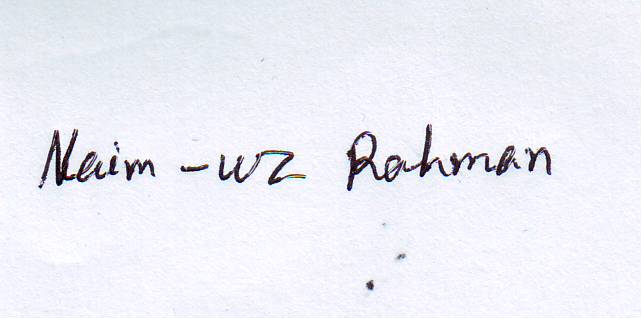 Naim -uz Rahman